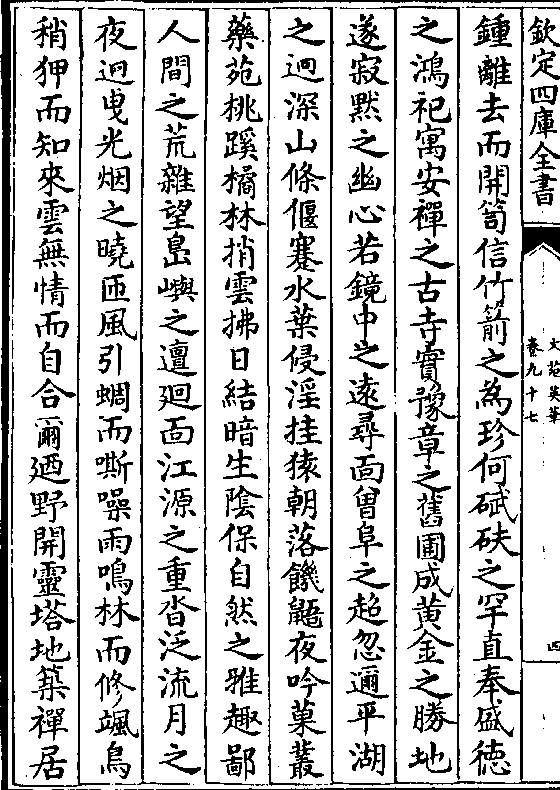 欽定四庫全書
文苑英華
卷九十七
四
鍾離去而開笥信竹箭之為珍何碔砆之罕直奉盛徳
之鴻祀寓安禪之古寺實豫章之舊圃成黄金之勝地
遂寂黙之幽心若鏡中之遠尋面曽阜之超忽邇平湖
之迥深山條偃蹇水葉侵淫挂猿朝落饑鼯夜吟菓叢
藥苑桃蹊橘林捎雲拂日結暗生陰保自然之雅趣鄙
人間之荒雜望島嶼之邅廻面江源之重沓泛流月之
夜迥曵光烟之曉匝風引蜩而嘶噪雨鳴林而修颯鳥
稍狎而知來雲無情而自合爾廼野開靈塔地築禪居